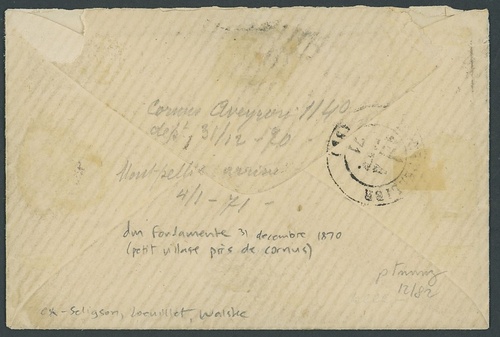 Cornus Aveyron 1140
dept, 31/12 - 70
Montpellier arrivé
4/1 - 71 -
du fondamente 31 decembre 1870
(petit village près de cornus)
12/82
ex-Seligson, Lecuillet, Walske